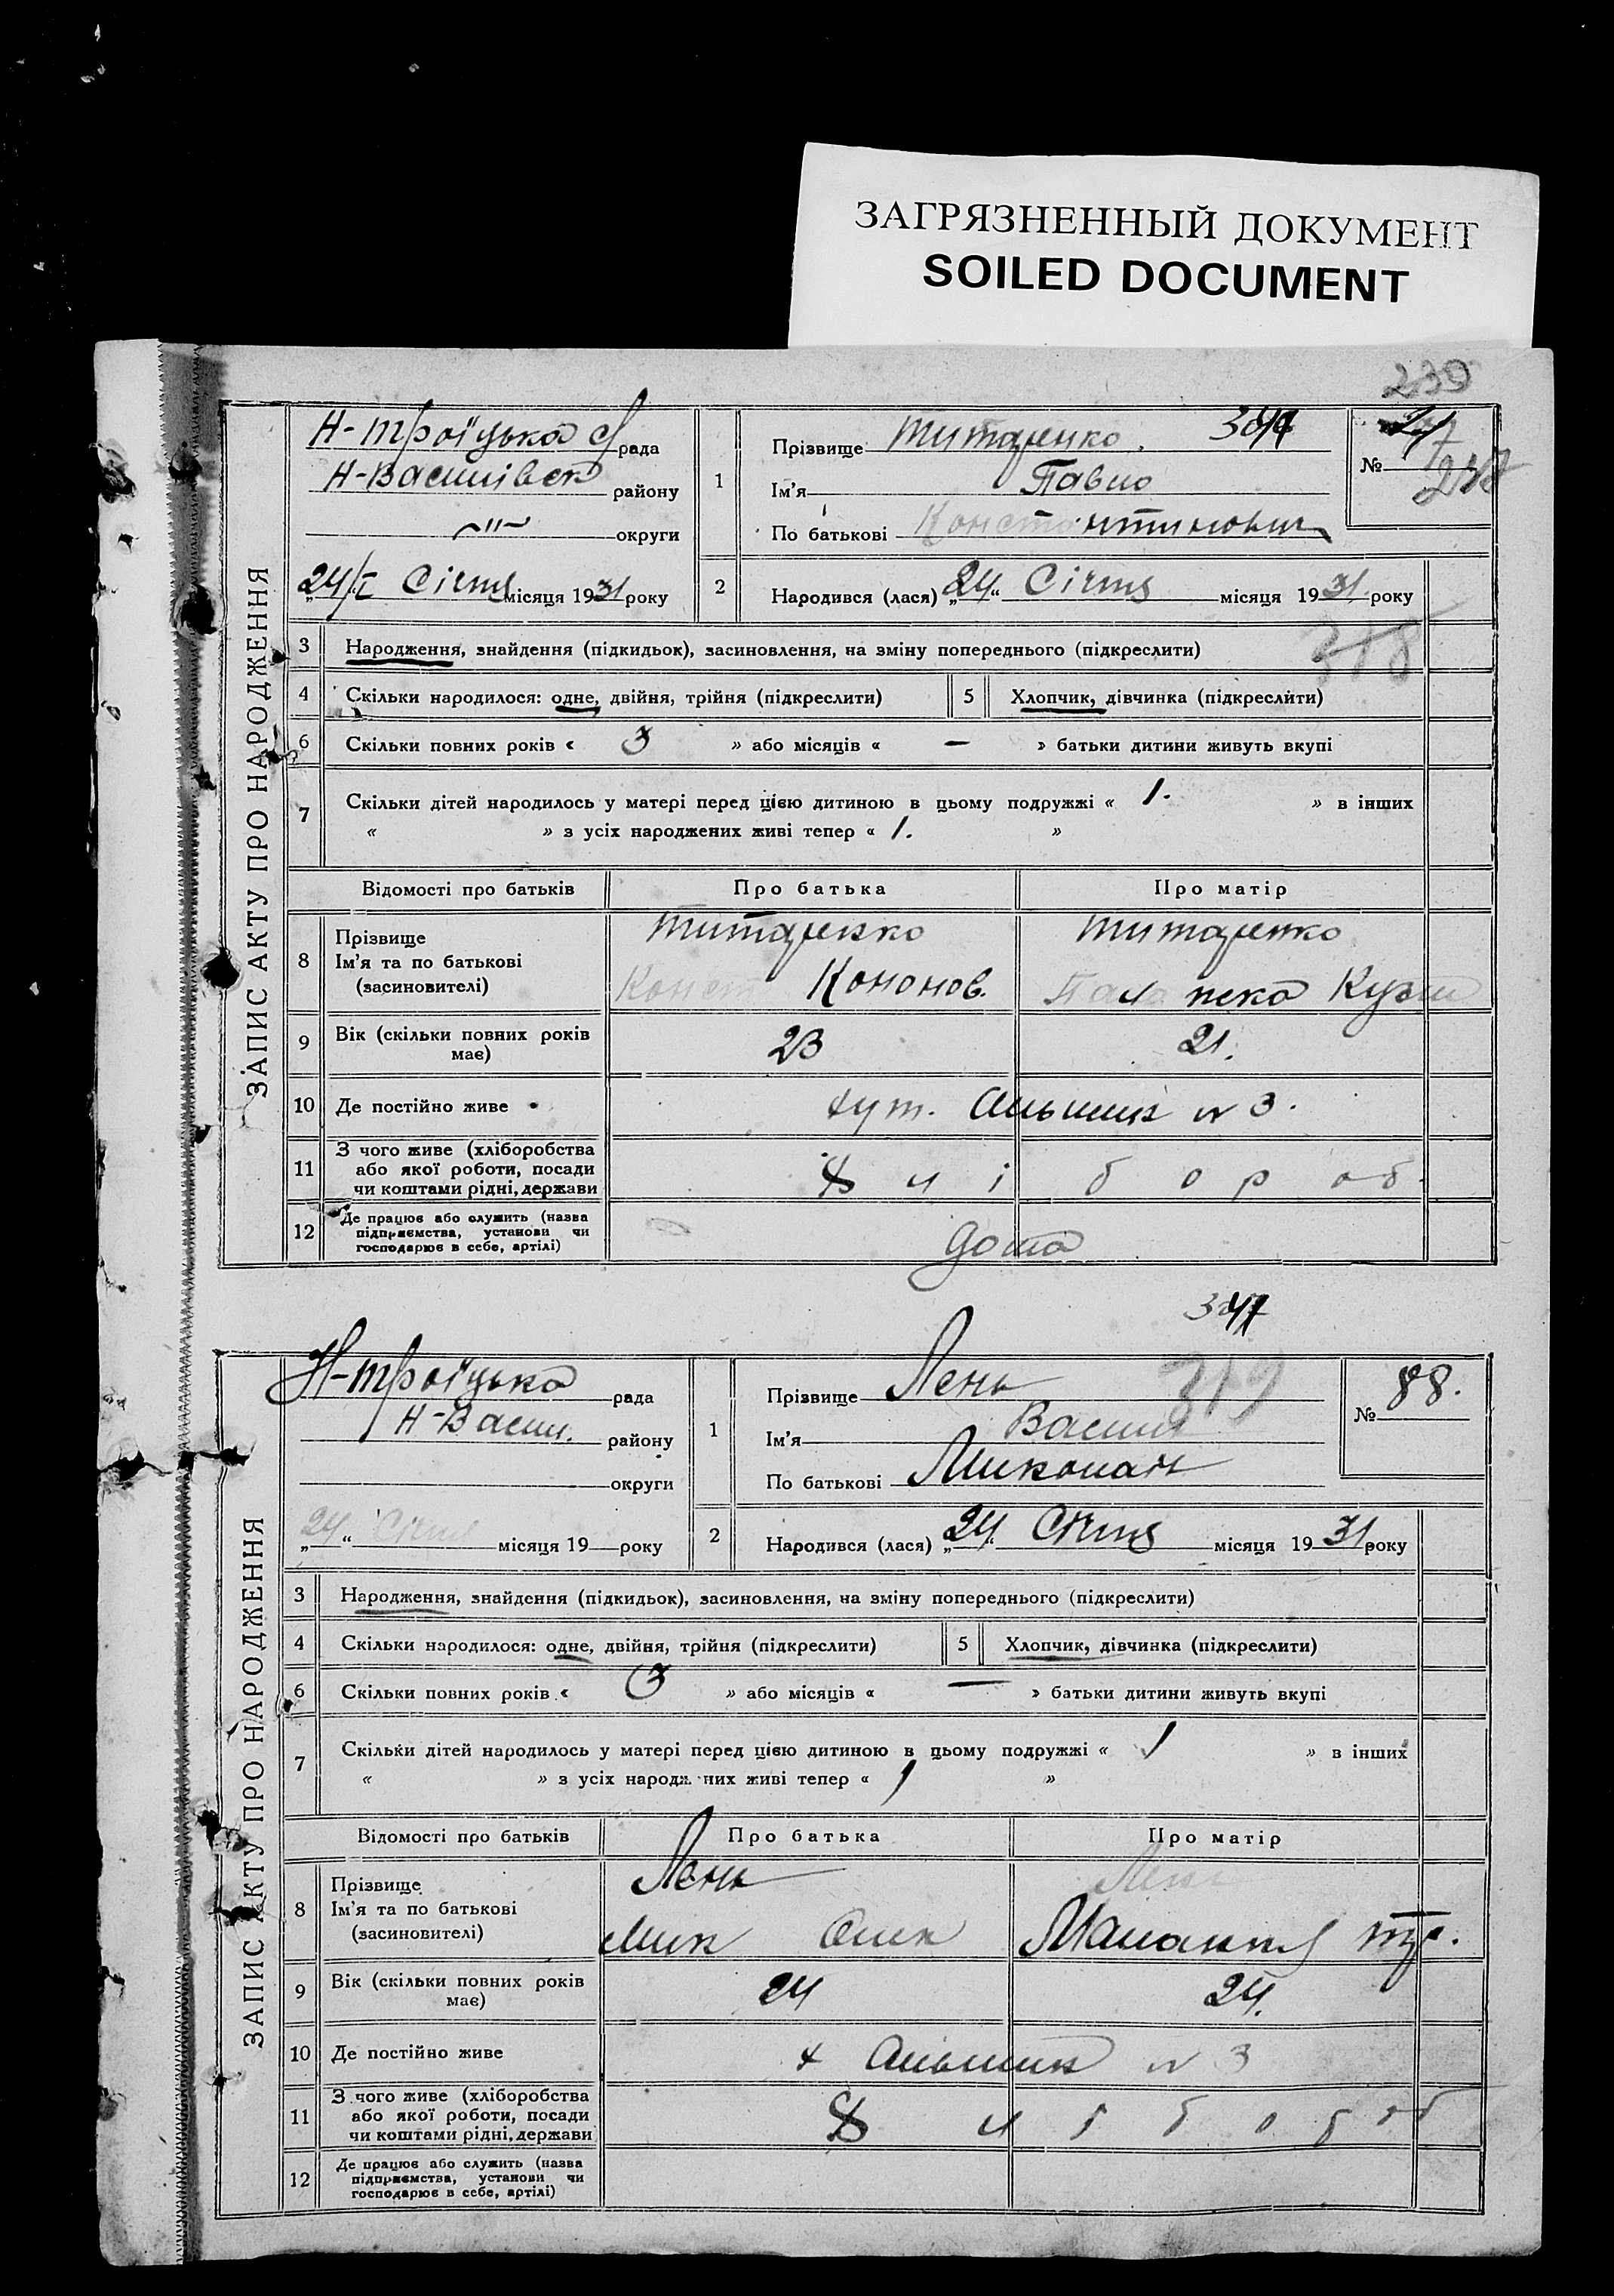 ЗАГРЯЗНЕННЫЙ ДОКУМЕНТ
SOILED DOCUMENT
239
ЗАПИС АКТУ ПРО НАРОДЖЕННЯ
Н-Троїцька с/рада
Н-Василівськ району
-"- округи
„24/I“ Січня місяця 1931 року
1 Прізвище Титаренко.
Ім'я Павло
По батькові Константинович
№
2 Народився (лася) „24“ Січня місяця 1931 року
318
3 Народження, знайдення (підкидьок), засиновлення, на зміну попереднього (підкреслити)
4 Скільки народилося: одне, двійня, трійня (підкреслити) 5 Хлопчик, дівчинка (підкреслити)
6 Скільки повних років « 3 » або місяців « — » батьки дитини живуть вкупі
7 Скільки дітей народилось у матері перед цією дитиною в цьому подружжі « 1. » в інших
« » з усіх народжених живі тепер « 1. »
Відомості про батьків Про батька Про матір
8 Прізвище Ім'я та по батькові (засиновителі) Титаренко Конст Кононов. Титаренко Палажка Кузм
9 Вік (скільки повних років має) 23 21.
10 Де постійно живе хут. Альшик № 3.
11 З чого живе (хліборобства або якої роботи, посади чи коштами рідні, держави Хлібороб.
12 Де працює або служить (назва підприємства, установи чи господарює в себе, артілі) дома
347
ЗАПИС АКТУ ПРО НАРОДЖЕННЯ
Н-Троїцька рада
Н-Васил. району
округи
„24“ Січня місяця 19 року
1 Прізвище Лень 319
Ім'я Василь
По батькові Миколаи
№ 88.
2 Народився (лася) „24“ Січня місяця 1931 року
3 Народження, знайдення (підкидьок), засиновлення, на зміну попереднього (підкреслити)
4 Скільки народилося: одне, двійня, трійня (підкреслити) 5 Хлопчик, дівчинка (підкреслити)
6 Скільки повних років « 3 » або місяців « — » батьки дитини живуть вкупі
7 Скільки дітей народилось у матері перед цією дитиною в цьому подружжі « 1 » в інших
« » з усіх народжених живі тепер « 1 »
Відомості про батьків Про батька Про матір
8 Прізвище Ім'я та по батькові (засиновителі) Лень Мик Лень
9 Вік (скільки повних років має) 24 24.
10 Де постійно живе х Альшик № 3
11 З чого живе (хліборобства або якої роботи, посади чи коштами рідні, держави Хлібороб
12 Де працює або служить (назва підприємства, установи чи господарює в себе, артілі)